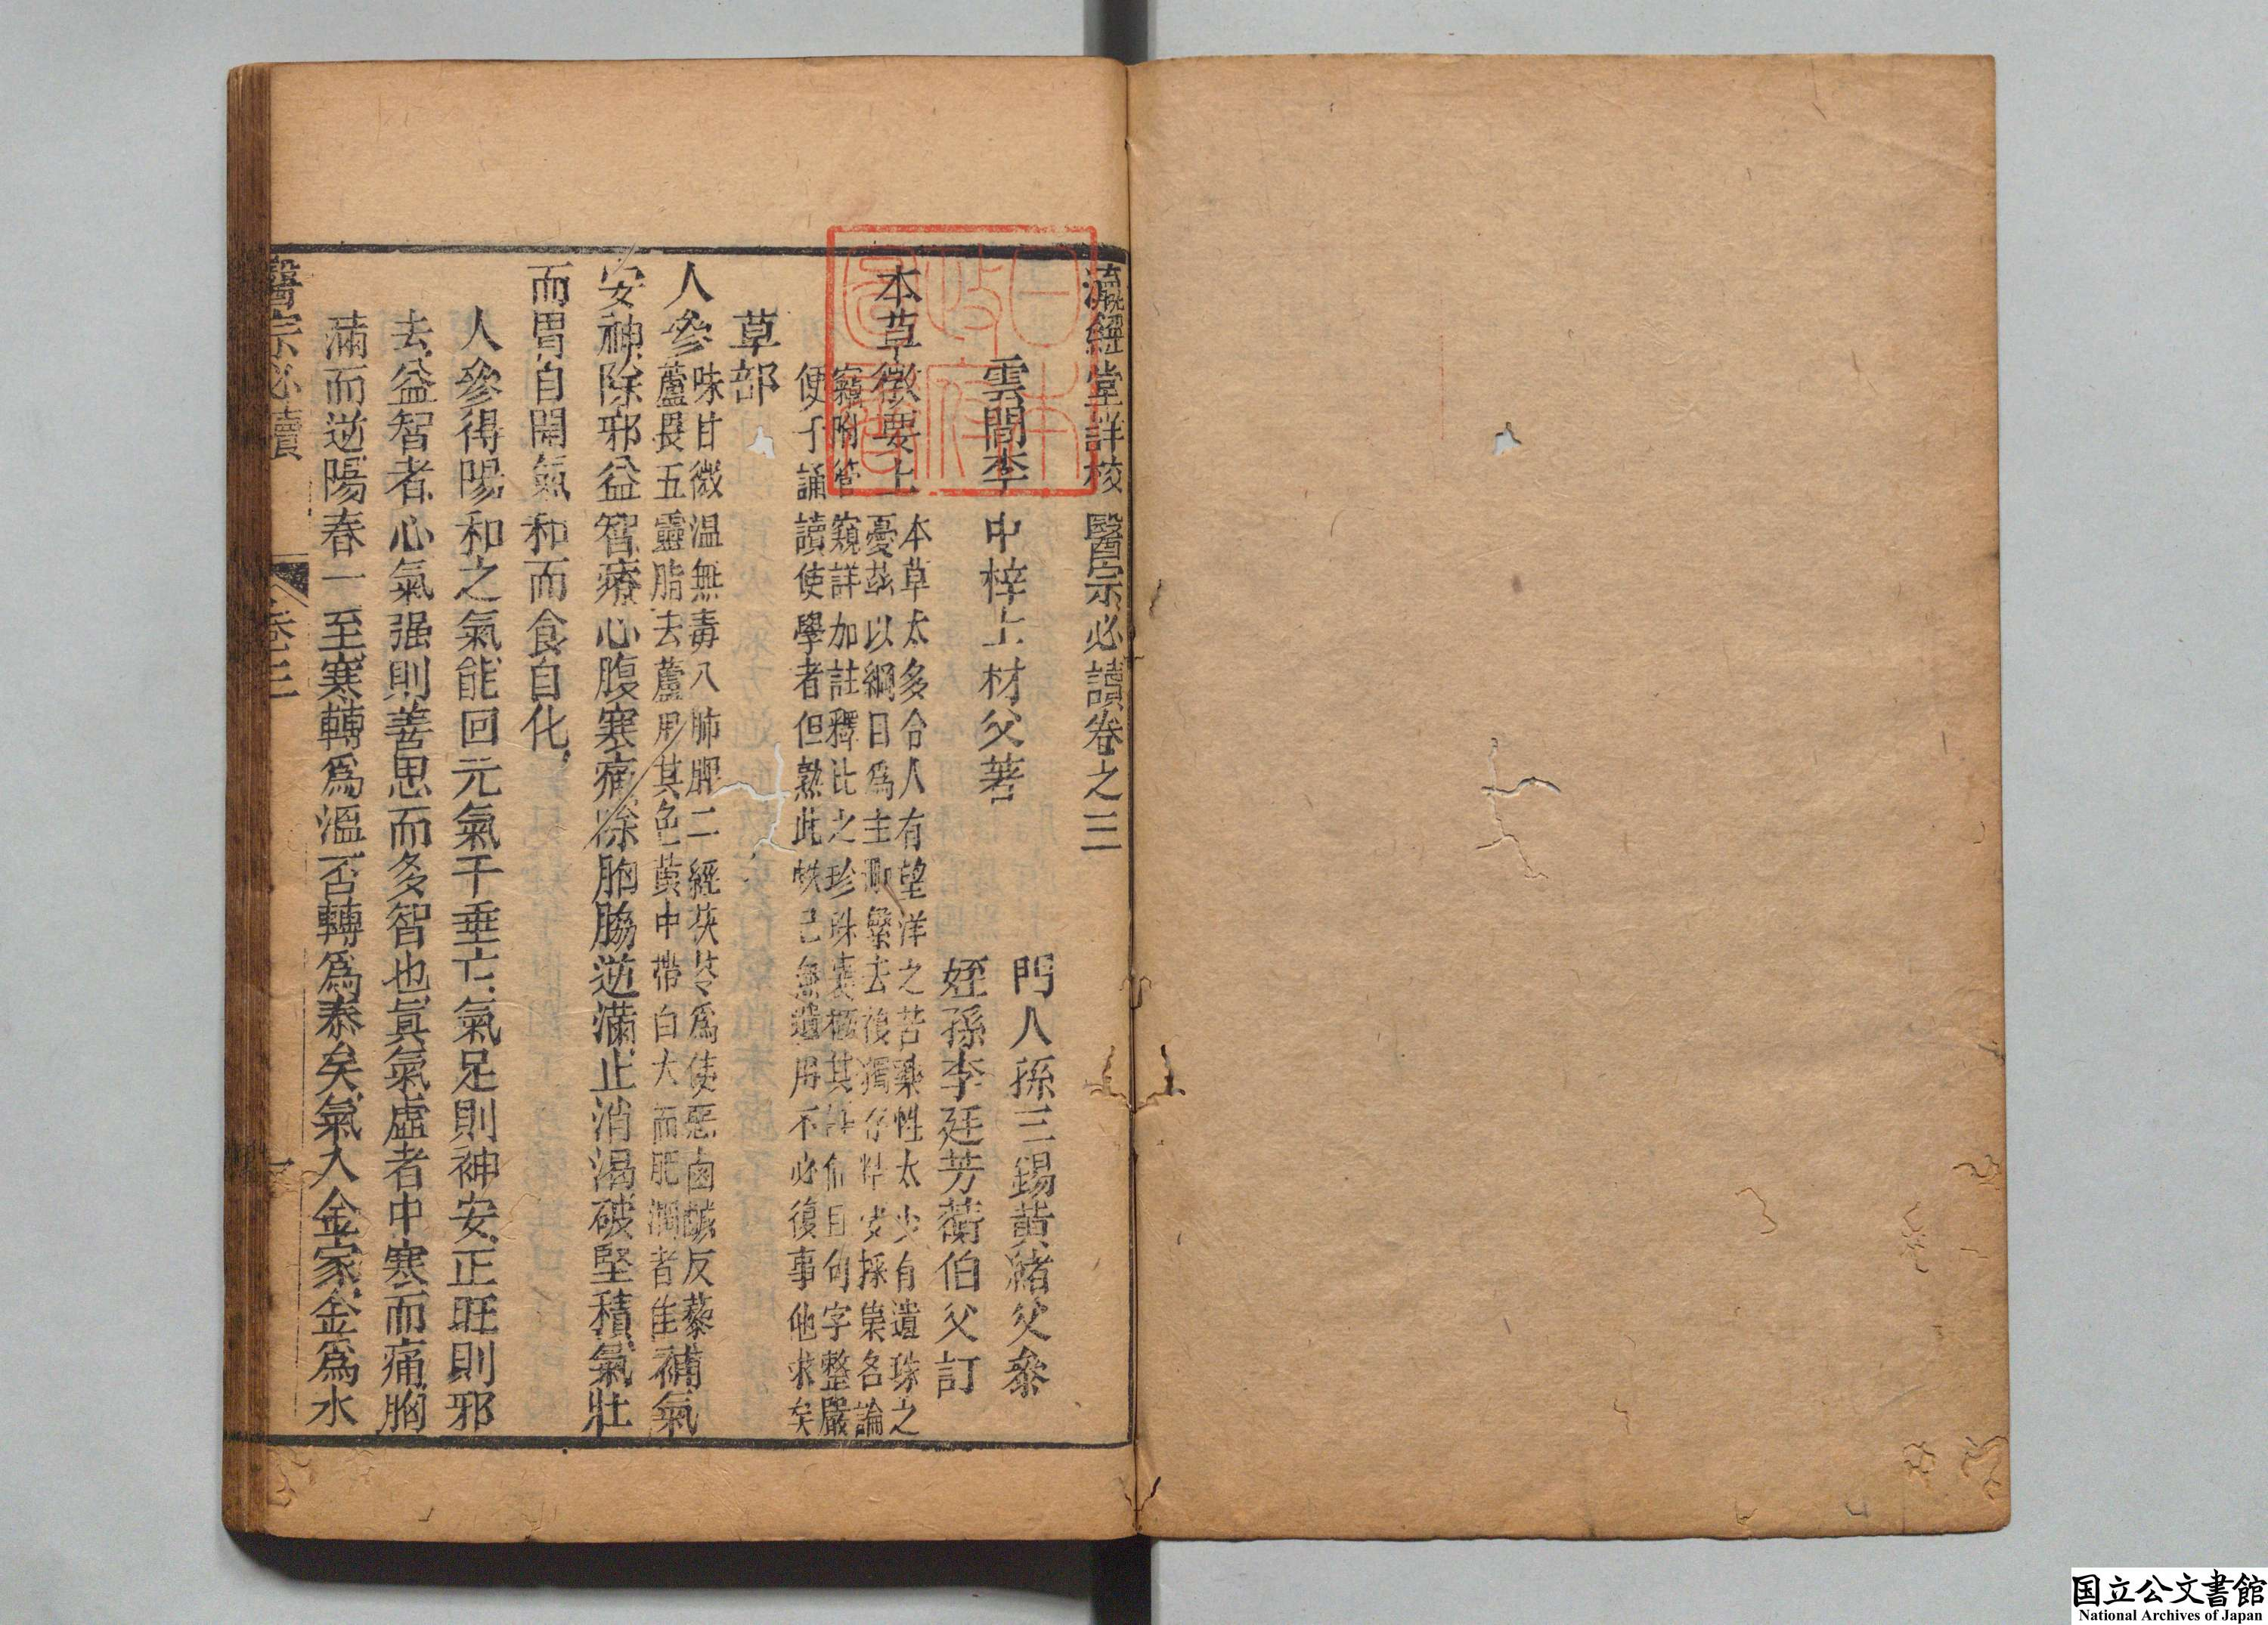 瀛經堂詳校醫宗必讀卷之三
門人孫三錫黃緒父參
雲間李中梓士材父著
姪孫李廷芳蘅伯父訂
本草徵要上
本草太多令人有望洋之苦藥性太少有遺珠之
憂茲以綱目為主刪繁去複獨存精要採集各論
竊附管窺詳加註釋比之珍珠囊極其詳備且句字整嚴
便于誦讀使學者但熟此帙已無遺用不必復事他求矣
草部
人參
味甘微温無毒入肺脾二經茯苓爲使惡鹵鹹反藜
蘆畏五靈脂去蘆用其色黃中帶白大而肥潤者佳
補氣
安神除邪益智療心腹寒痛除胸脇逆滿止消渴破堅積氣壯
而胃自開氣和而食自化
人參得陽和之氣能回元氣于垂亡氣足則神安正旺則邪
去益智者心氣强則善思而多智也眞氣虛者中寒而痛胸
滿而逆陽春一至寒轉爲溫否轉爲泰矣氣入金家金爲水
醫宗必讀
卷三
一
日本政府圖書
国立公文書館
National Archives of Japan